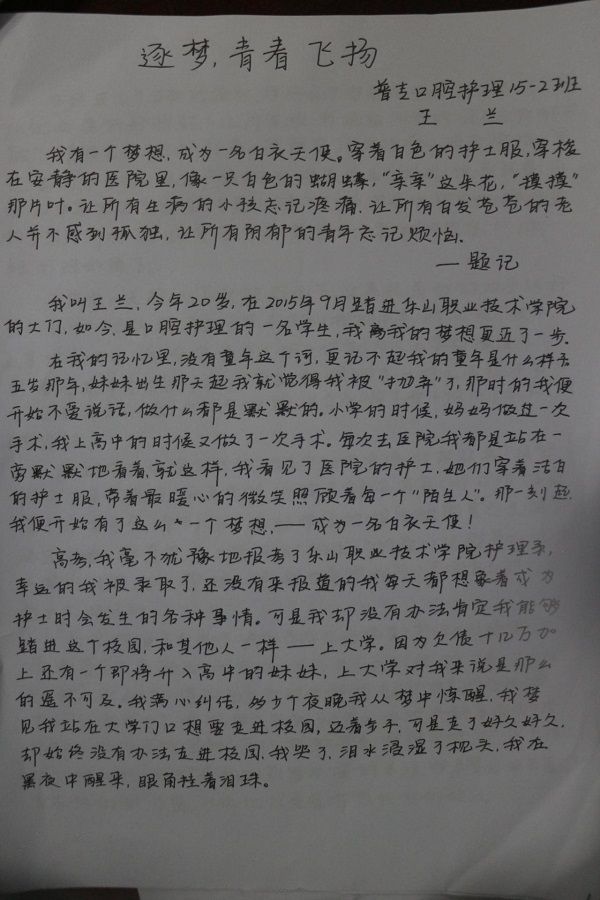 逐梦,青春飞扬
普专口腔护理15-2班
王 兰
我有一个梦想,成为一名白衣天使。穿着白色的护士服,穿梭
在安静的医院里,像一只白色的蝴蝶,“亲亲”这朵花,“摸摸”
那片叶。让所有生病的小孩忘记疼痛.让所有白发苍苍的老
人并不感到孤独,让所有阴郁的青年忘记烦恼.
—题记
我叫王兰,今年20岁,在2015年9月踏进乐山职业技术学院
的大门,如今.是口腔护理的一名学生,我离我的梦想更近了一步.
在我的记忆里,没有童年这个词,更记不起我的童年是什么样子
五岁那年,妹妹出生那天起我就觉得我被“抛弃”了,那时的我便
开始不爱说话,做什么都是默默的。小学的时候,妈妈做过一次
手术,我上高中的时候又做了一次手术。每次去医院我都是站在一
旁默默地看着,就这样,我看见了医院的护士,她们穿着洁白
的护士服,带着最暖心的微笑照顾着每一个“陌生人”。那一刻起.
我便开始有了这么一个梦想,——成为一名白衣天使!
高考,我毫不犹豫地报考了乐山职业技术学院护理系,
幸运的我被录取了,还没有来报道的我每天都想象着成为
护士时会发生的各种事情。可是我却没有办法肯定我能够
踏进这个校园,和其他人一样——上大学。因为欠债十几万加
上还有一个即将升入高中的妹妹,上大学对我来说是那么
的遥不可及。我满心纠结,多少个夜晚我从梦中惊醒,我梦
见我站在大学门口想要走进校园,迈着步子,可是走了好久好久,
却始终没有办法走进校园,我哭了,泪水浸湿了枕头,我在
黑夜中醒来,眼角挂着泪珠。